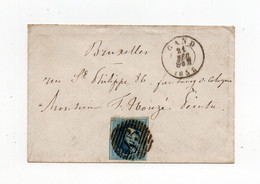 GAND
21
DEC
1856
Bruxelles
rue St Philippe 86. faubourg de Cologne
Monsieur F.